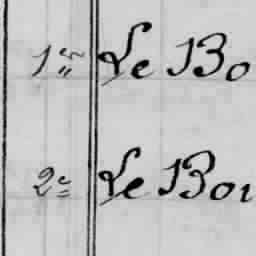 1er Le Bo
2e Le Boi